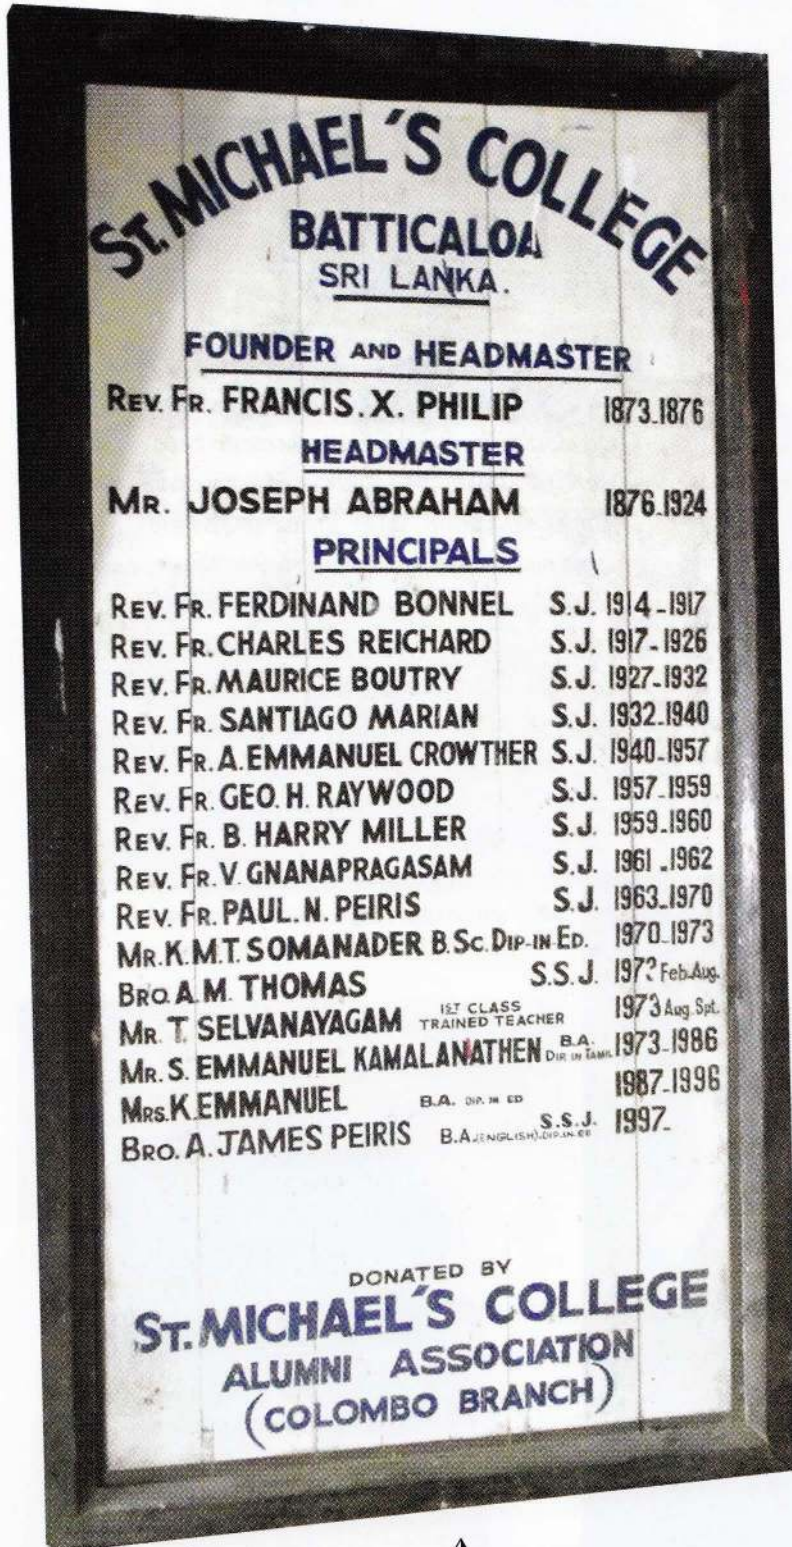 ST. MICHAEL'S COLLEGE
BATTICALOA
SRI LANKA.
FOUNDER AND HEADMASTER
REV. FR. FRANCIS. X. PHILIP 1873-1876
HEADMASTER
MR. JOSEPH ABRAHAM 1876-1924
PRINCIPALS
REV. FR. FERDINAND BONNEL S.J. 1914-1917
REV. FR. CHARLES REICHARD S.J. 1917-1926
REV. FR. MAURICE BOUTRY S.J. 1927-1932
REV. FR. SANTIAGO MARIAN S.J. 1932-1940
REV. FR. A. EMMANUEL CROWTHER S.J. 1940-1957
REV. FR. GEO. H. RAYWOOD S.J. 1957-1959
REV. FR. B. HARRY MILLER S.J. 1959-1960
REV. FR. V. GNANAPRAGASAM S.J. 1961-1962
REV. FR. PAUL. N. PEIRIS S.J. 1963-1970
MR. K.M.T. SOMANADER B.Sc. DIP-IN-ED. 1970-1973
BRO. A.M. THOMAS S.S.J. Feb-Aug.
MR. T. SELVANAYAGAM 1ST CLASS TRAINED TEACHER 1973 Aug. Spt.
MR. S. EMMANUEL KAMALANATHEN B.A. DIP. IN TAMIL 1973-1986
MRS. K. EMMANUEL B.A. DIP. IN ED 1987-1996
BRO. A. JAMES PEIRIS B.A. (ENGLISH). DIP. IN ED S.S.J. 1997-
DONATED BY
ST. MICHAEL'S COLLEGE
ALUMNI ASSOCIATION
(COLOMBO BRANCH)